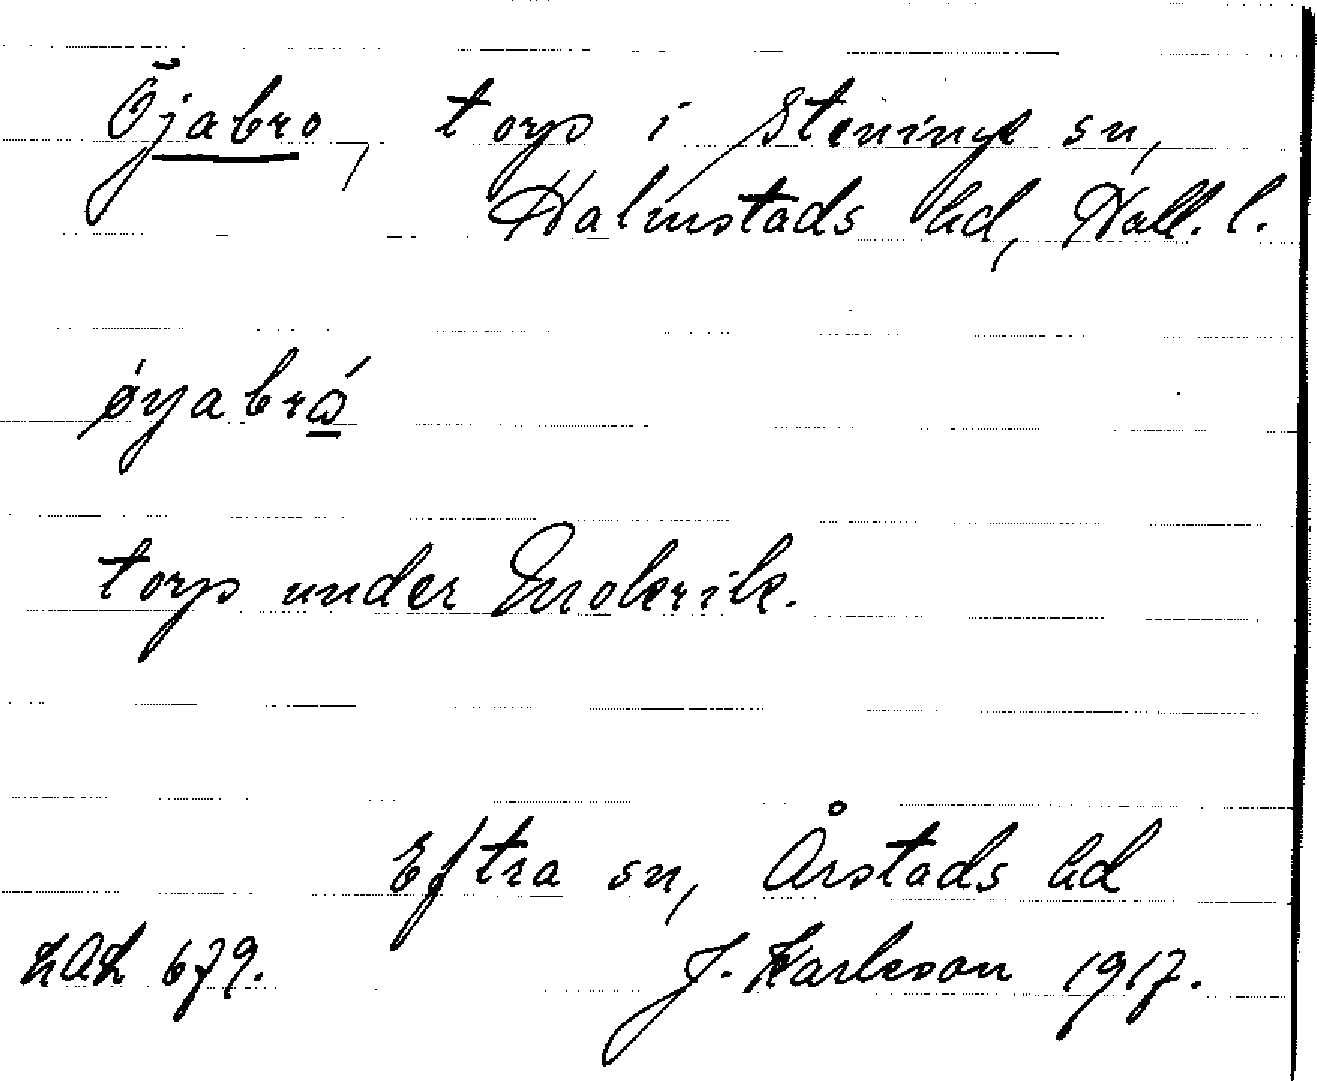 Öjabro, torp i Steninge sn,
Halmstads hd, Hall. l.
øyabrώ
torp under
Eftra sn, Årstads hd
LAL 679.
J. Karlsson 1917.